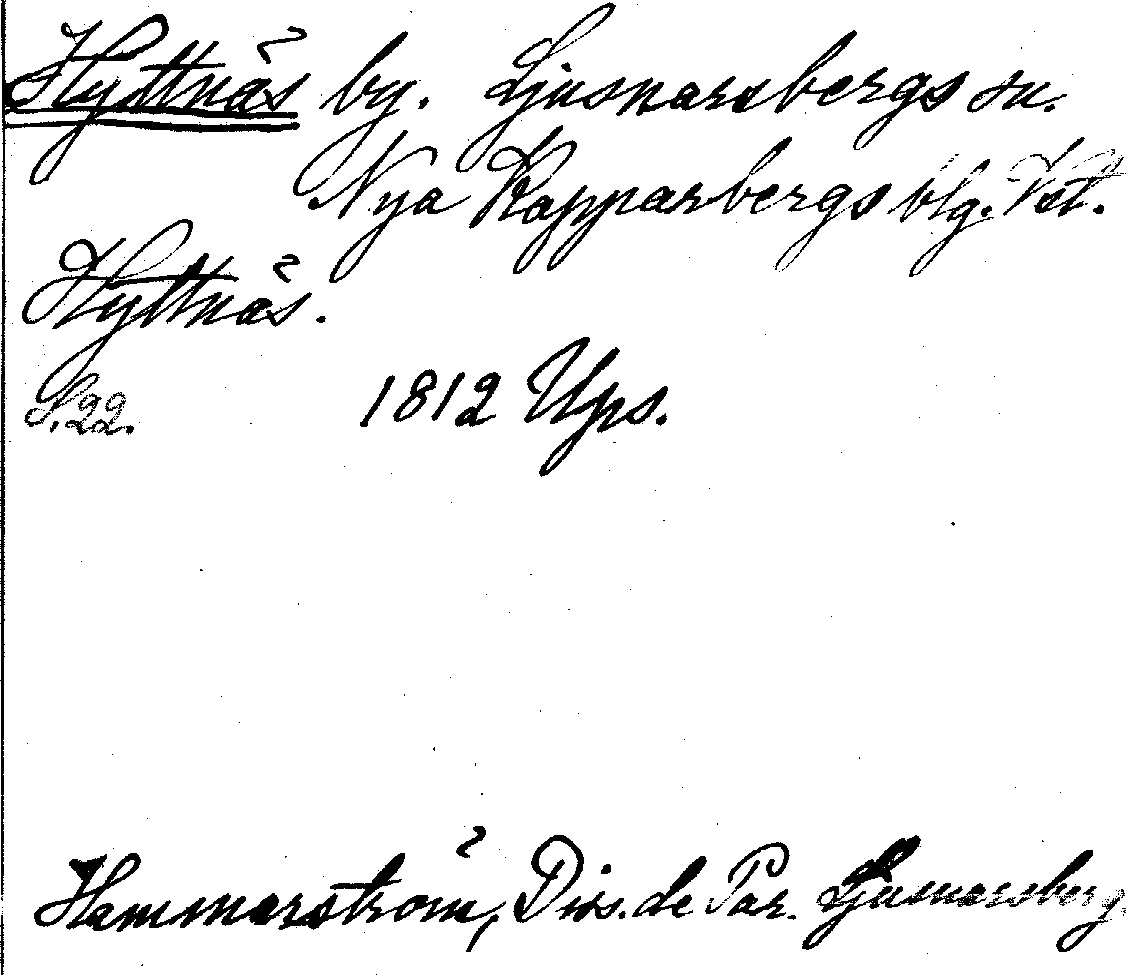 Hyttnäs by. Ljusnarsbergs sn.
Nya Kopparbergs blg. Vst.
Hyttnäs.
S. 22. 1812 Ups.
Hammarström, Diss. de Par. Ljusnarsberg.